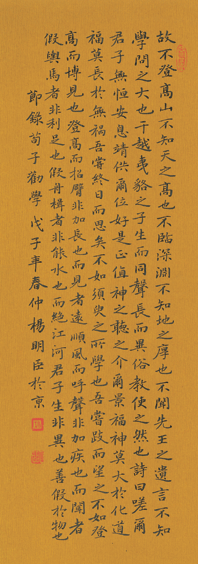 故不登高山不知天之高也不臨深淵不知地之厚也不聞先王之遺言不知
學問之大也干越夷貉之子生而同聲長而異俗教使之然也詩曰嗟爾
君子無恒安息靖供爾位好是正值神之聽之介爾景福神莫大於化道
福莫長於無禍吾嘗終日而思矣不如須臾之所學也吾嘗跂而望之不如登
高而博見也登高而招臂非加長也而見者遠順風而呼聲非加疾也而聞者
假輿馬者非利足也假舟楫者非能水也而絕江河君子生非異也善假於物也
節錄荀子勸學戊子年春仲楊明臣於京